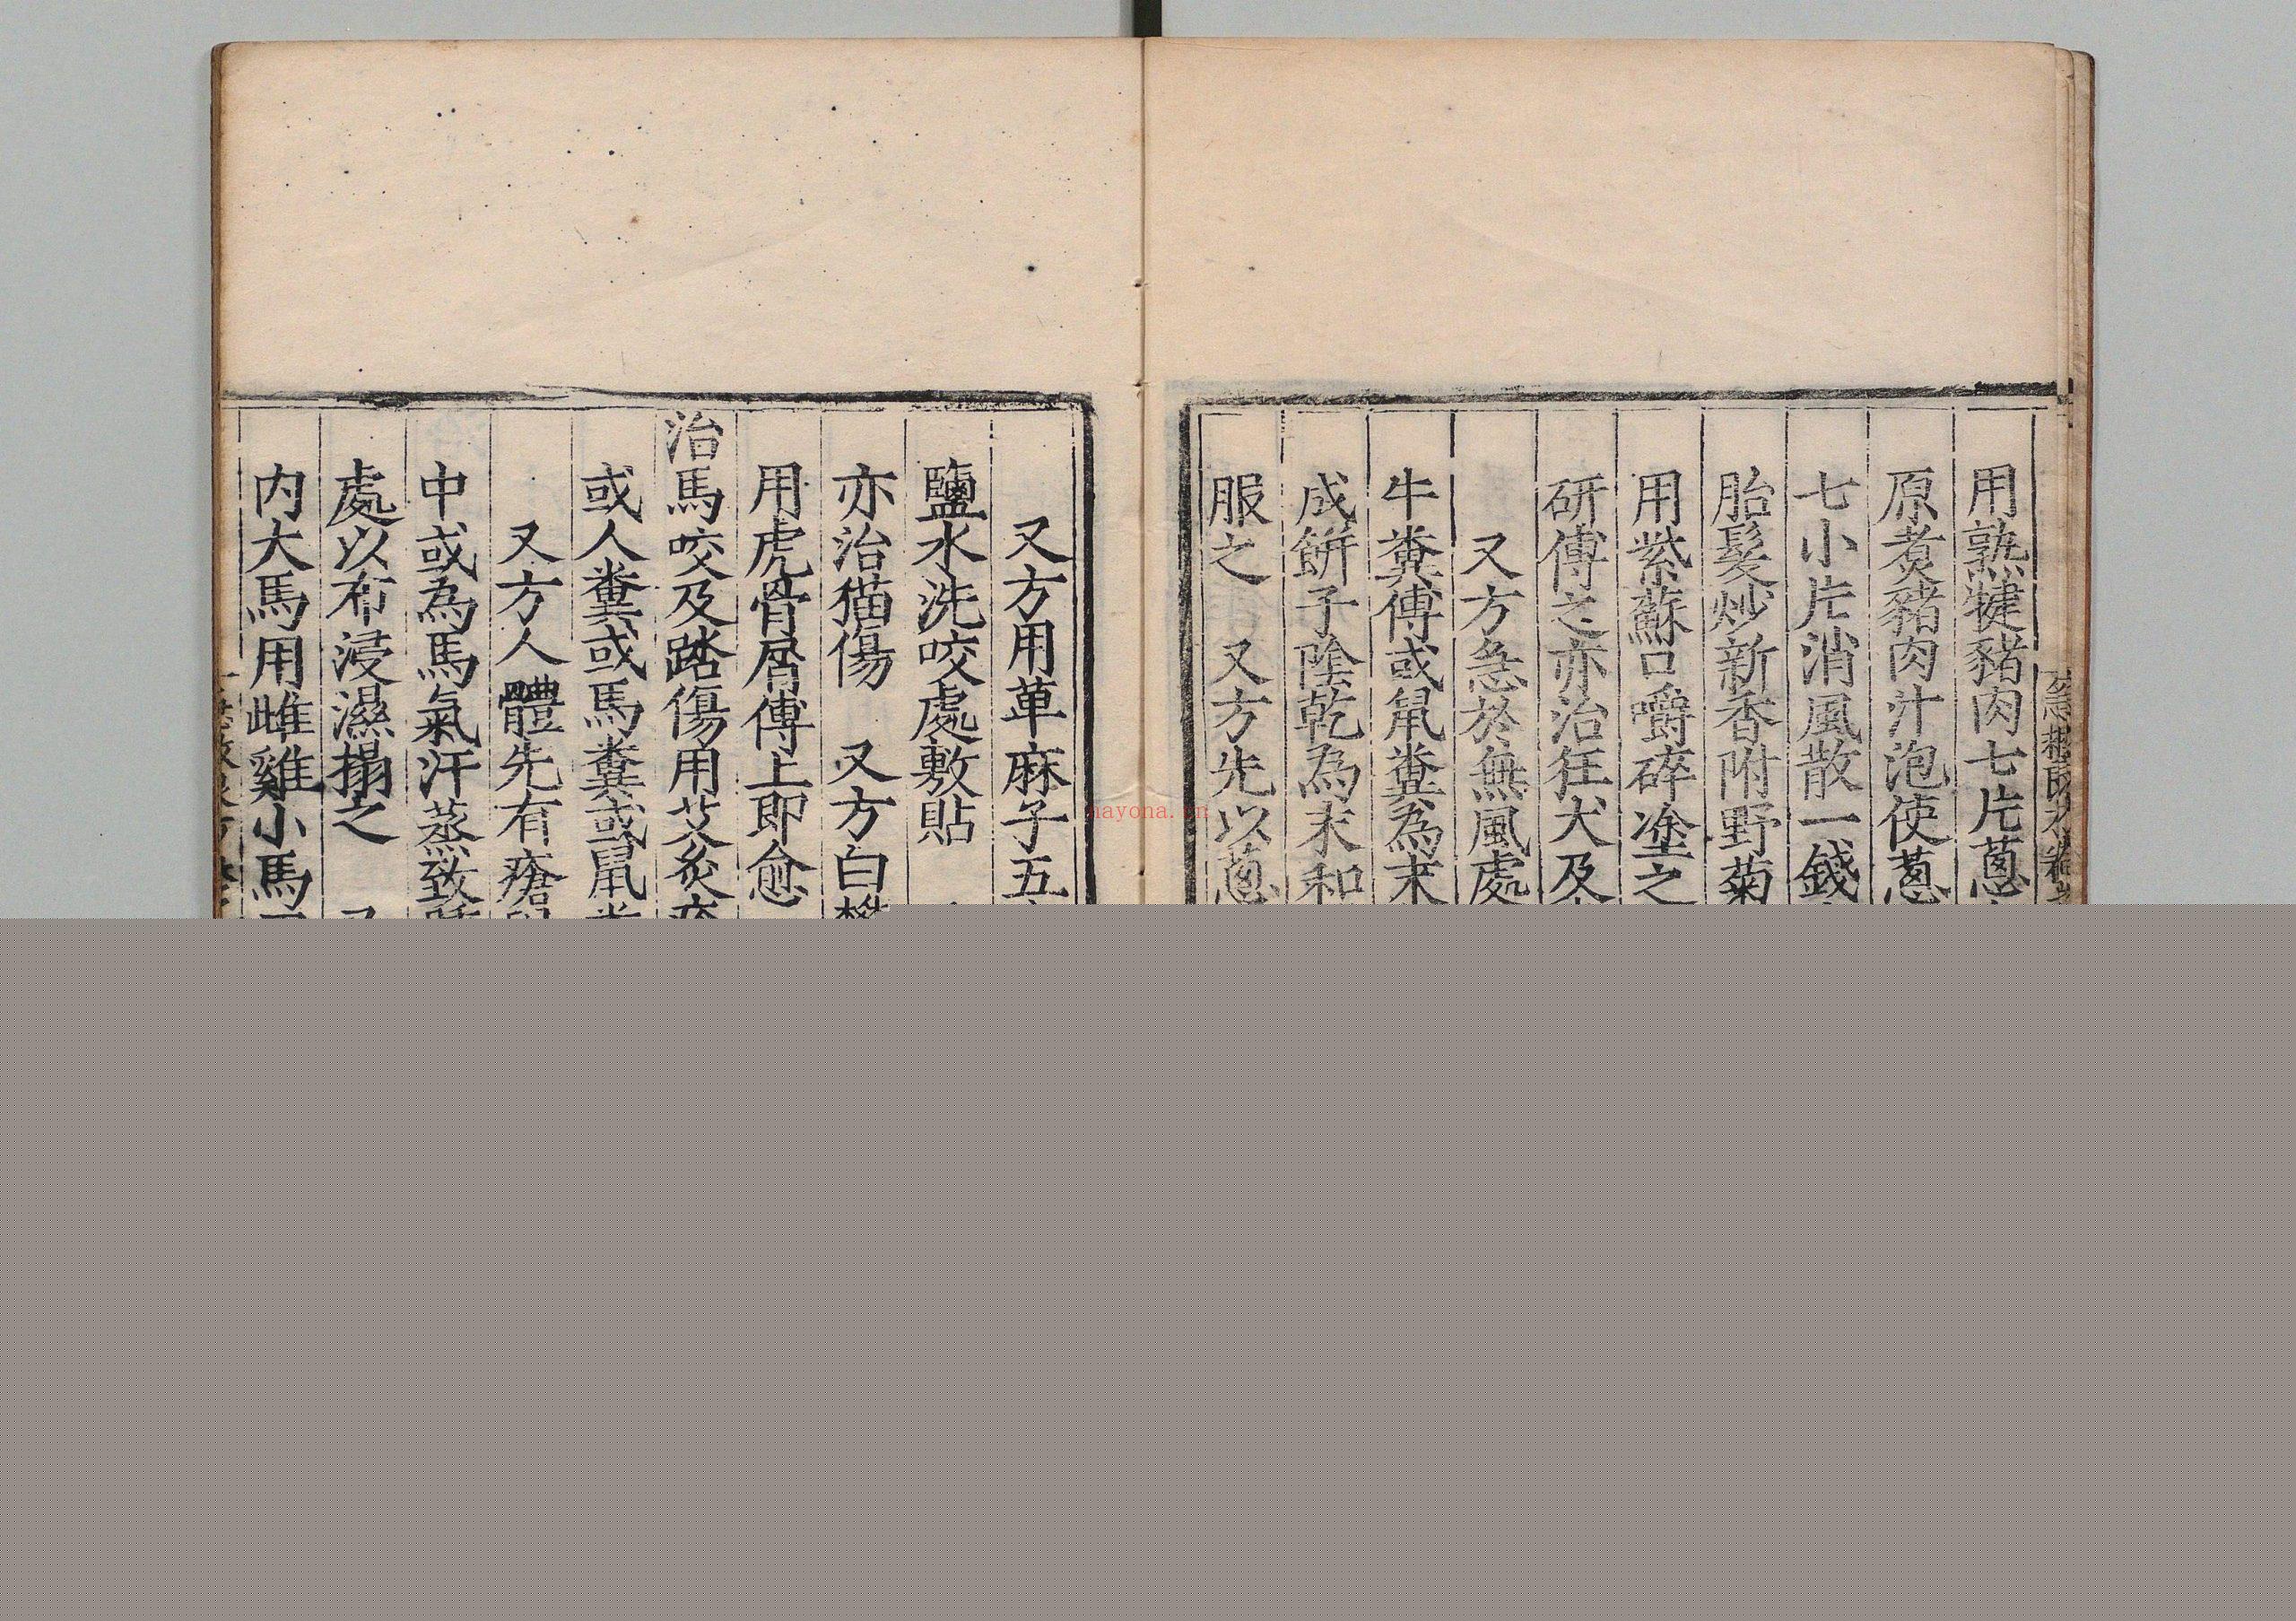 用熟犍豬肉七片蔥
原煮豬肉汁泡使蔥
七小片消風散一錢
胎髮炒新香附野菊
用紫蘇口嚼碎塗之
研傅之亦治狂犬及
又方急於無風處
牛糞傅或鼠糞為末
成餅子陰乾為末和
服之　又方先以蔥
又方用萆麻子五
鹽水洗咬處敷貼
亦治猫傷　又方白
用虎骨屑傅上即愈
治馬咬及踏傷用艾灸
或人糞或馬糞或鼠
又方人體先有瘡
中或為馬氣汗蒸致
處以布浸濕搨之
内大馬用雌雞小馬